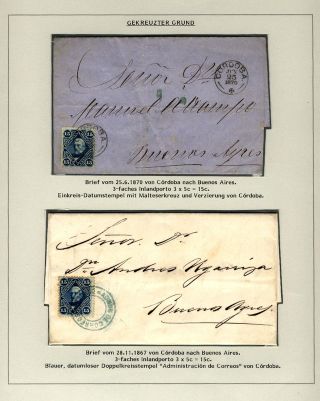 GEKREUZTER GRUND
CORDOBA
JUN
25
1870
Señor Dn
Manuel Ocampo
Buenos Ayres
15 15
Brief vom 25.6.1870 von Córdoba nach Buenos Aires.
3-faches Inlandporto 3 x 5c = 15c.
Einkreis-Datumstempel mit Malteserkreuz und Verzierung von Córdoba.
Señor Dr
Dn Andres Ugarriza
Buenos Ayres
15 15
Brief vom 28.11.1867 von Córdoba nach Buenos Aires.
3-faches Inlandporto 3 x 5c = 15c.
Blauer, datumloser Doppelkreisstempel "Administración de Correos" von Córdoba.